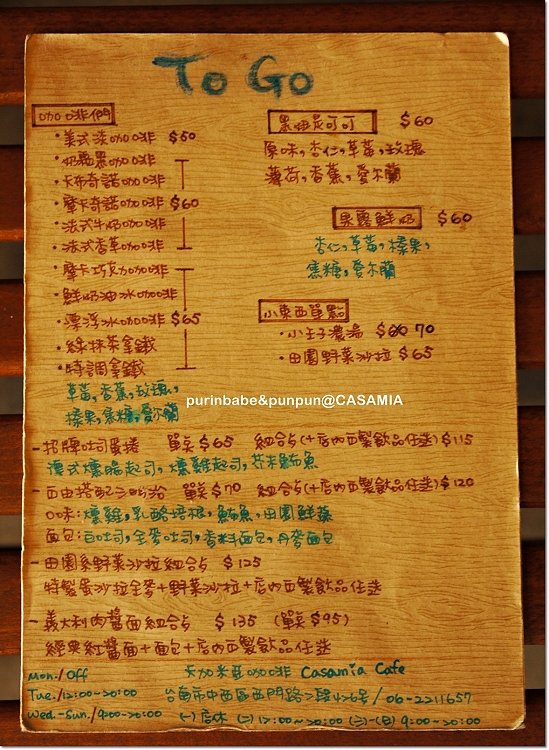 To Go
咖啡們
・美式淡咖啡 $50
・奶黑咖啡
・卡布奇諾咖啡
・摩卡奇諾咖啡 $60
・法式牛奶咖啡
・法式香草咖啡
・摩卡巧克咖啡
・鮮奶油冰咖啡
・漂浮冰咖啡 $65
・綠抹茶拿鐵
・特調拿鐵
草莓,香蕉,玫瑰,
榛果,焦糖,愛爾蘭
可可 $60
原味,杏仁,草莓,玫瑰
薄荷,香蕉,愛爾蘭
果露鮮奶 $60
杏仁,草莓,榛果,
焦糖,愛爾蘭
小東西單點
・小王子濃湯 70
・田園野菜沙拉 $65
purinbabe&punpun@CASAMIA
-招牌吐司蛋捲 單點 $65 組合(+店內自製飲品任選) $115
燻雞起司,鮪魚
-自由搭配三明治 單點 $70 組合(+店內自製飲品任選) $120
口味:燻雞,乳酪培根,鮪魚,田園鮮蔬
麵包:白吐司,全麥吐司,香料麵包,丹麥麵包
-田園系野菜沙拉組合 $125
特製蛋沙拉全麥+野菜沙拉+店內自製飲品任選
-義大利肉醬麵組合 $135 (單點 $95)
經典紅醬麵+麵包+店內自製飲品任選
Mon./Off
Tue./12:00-20:00
Wed.-Sun./9:00-20:00
卡加米亞咖啡 Casamia Cafe
台南市中西區西門路二段426號/06-2211657
(一)店休 (二)12:00~20:00 (三)-(日)9:00~20:00